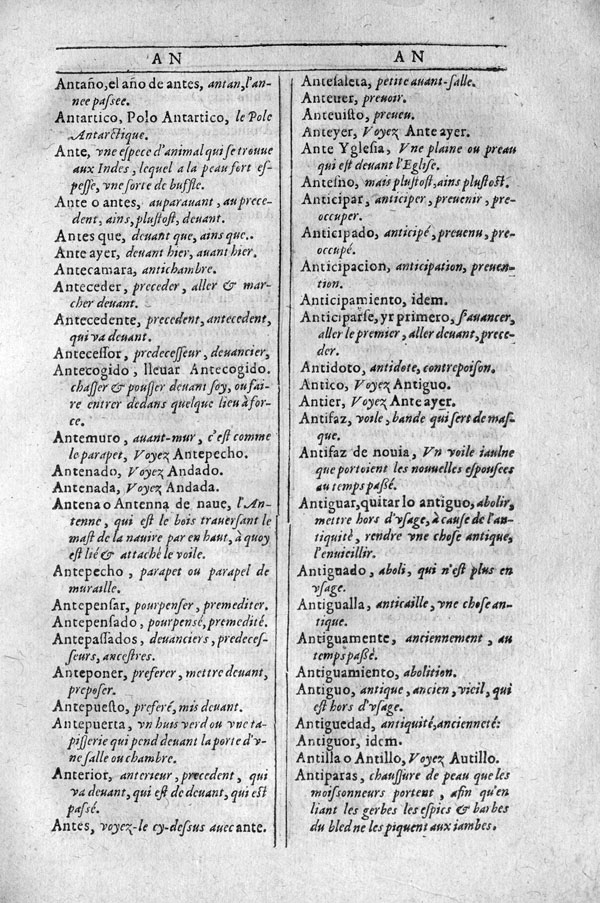 AN
Antaño, el año de antes, antan, l'an-
nee passee.
Antartico, Polo Antartico, le Pole
Antarctique.
Ante, vne espece d'animal qui se trouue
aux Indes, lequel a la peau fort es-
pesse, vne sorte de buffle.
Ante o antes, auparauant, au prece-
dent, ains, plustost, deuant.
Antes que, deuant que, ains que..
Ante ayer, deuant hier, auant hier.
Antecamara, antichambre.
Anteceder, preceder, aller & mar-
cher deuant.
Antecedente, precedent, antecedent,
qui va deuant.
Antecessor, predecesseur, deuancier,
Antecogido, lleuar Antecogido.
chasser & pousser deuant soy, ou fai-
re entrer dedans quelque lieu à for-
ce.
Antemuro, auant-mur, c'est comme
le parapet, Voyez Antepecho.
Antenado, Voyez Andado.
Antenada, Voyez Andada.
Antena o Antenna de naue, l'An-
tenne, qui est le bois trauersant le
mast de la nauire par en haut, à quoy
est lié & attaché le voile.
Antepecho, parapet ou parapel de
muraille.
Antepensar, pourpenser, premediter.
Antepensado, pourpensé, premedité.
Antepassados, deuanciers, predeces-
seurs, ancestres.
Anteponer, preferer, mettre deuant,
preposer.
Antepuesto, preferé, mis deuant.
Antepuerta, vn huis verd ou vne ta-
pisserie qui pend deuant la porte d'v-
ne salle ou chambre.
Anterior, anterieur, precedent, qui
va deuant, qui est de deuant, qui est
passé.
Antes, voyez-le cy-dessus auec ante.
AN
Antesaleta, petite auant-salle.
Anteuer, preuoir.
Anteuisto, preueu.
Anteyer, Voyez Ante ayer.
Ante Yglesia, Vne plaine ou preau
qui est deuant l'Eglise.
Antesino, mais plustost, ains plustost.
Anticipar, anticiper, preuenir, pre-
occuper.
Anticipado, anticipé, preuenu, pre-
occupé.
Anticipacion, anticipation, preuen-
tion.
Anticipamiento, idem.
Anticiparse, yr primero, s'auancer,
aller le premier, aller deuant, prece-
der.
Antidoto, antidote, contrepoison.
Antico, Voyez Antiguo.
Antier, Voyez Ante ayer.
Antifaz, voile, bande qui sert de mas-
que.
Antifaz de nouia, Vn voile iaulne
que portoient les nouuelles espousees
au temps passé.
Antiguar, quitar lo antiguo, abolir,
mettre hors d'vsage, à cause de l'an-
tiquité, rendre vne chose antique,
l'enuieillir.
Antiguado, aboli, qui n'est plus en
vsage.
Antigualla, anticaille, vne chose an-
tique.
Antiguamente, anciennement, au
temps passé.
Antiguamiento, abolition.
Antiguo, antique, ancien, vieil, qui
est hors d'vsage.
Antiguedad, antiquité, ancienneté:
Antiguor, idem.
Antilla o Antillo, Voyez Autillo.
Antiparas, chaussure de peau que les
moissonneurs portent, afin qu'en
liant les gerbes les espics & barbes
du bled ne les piquent aux iambes.